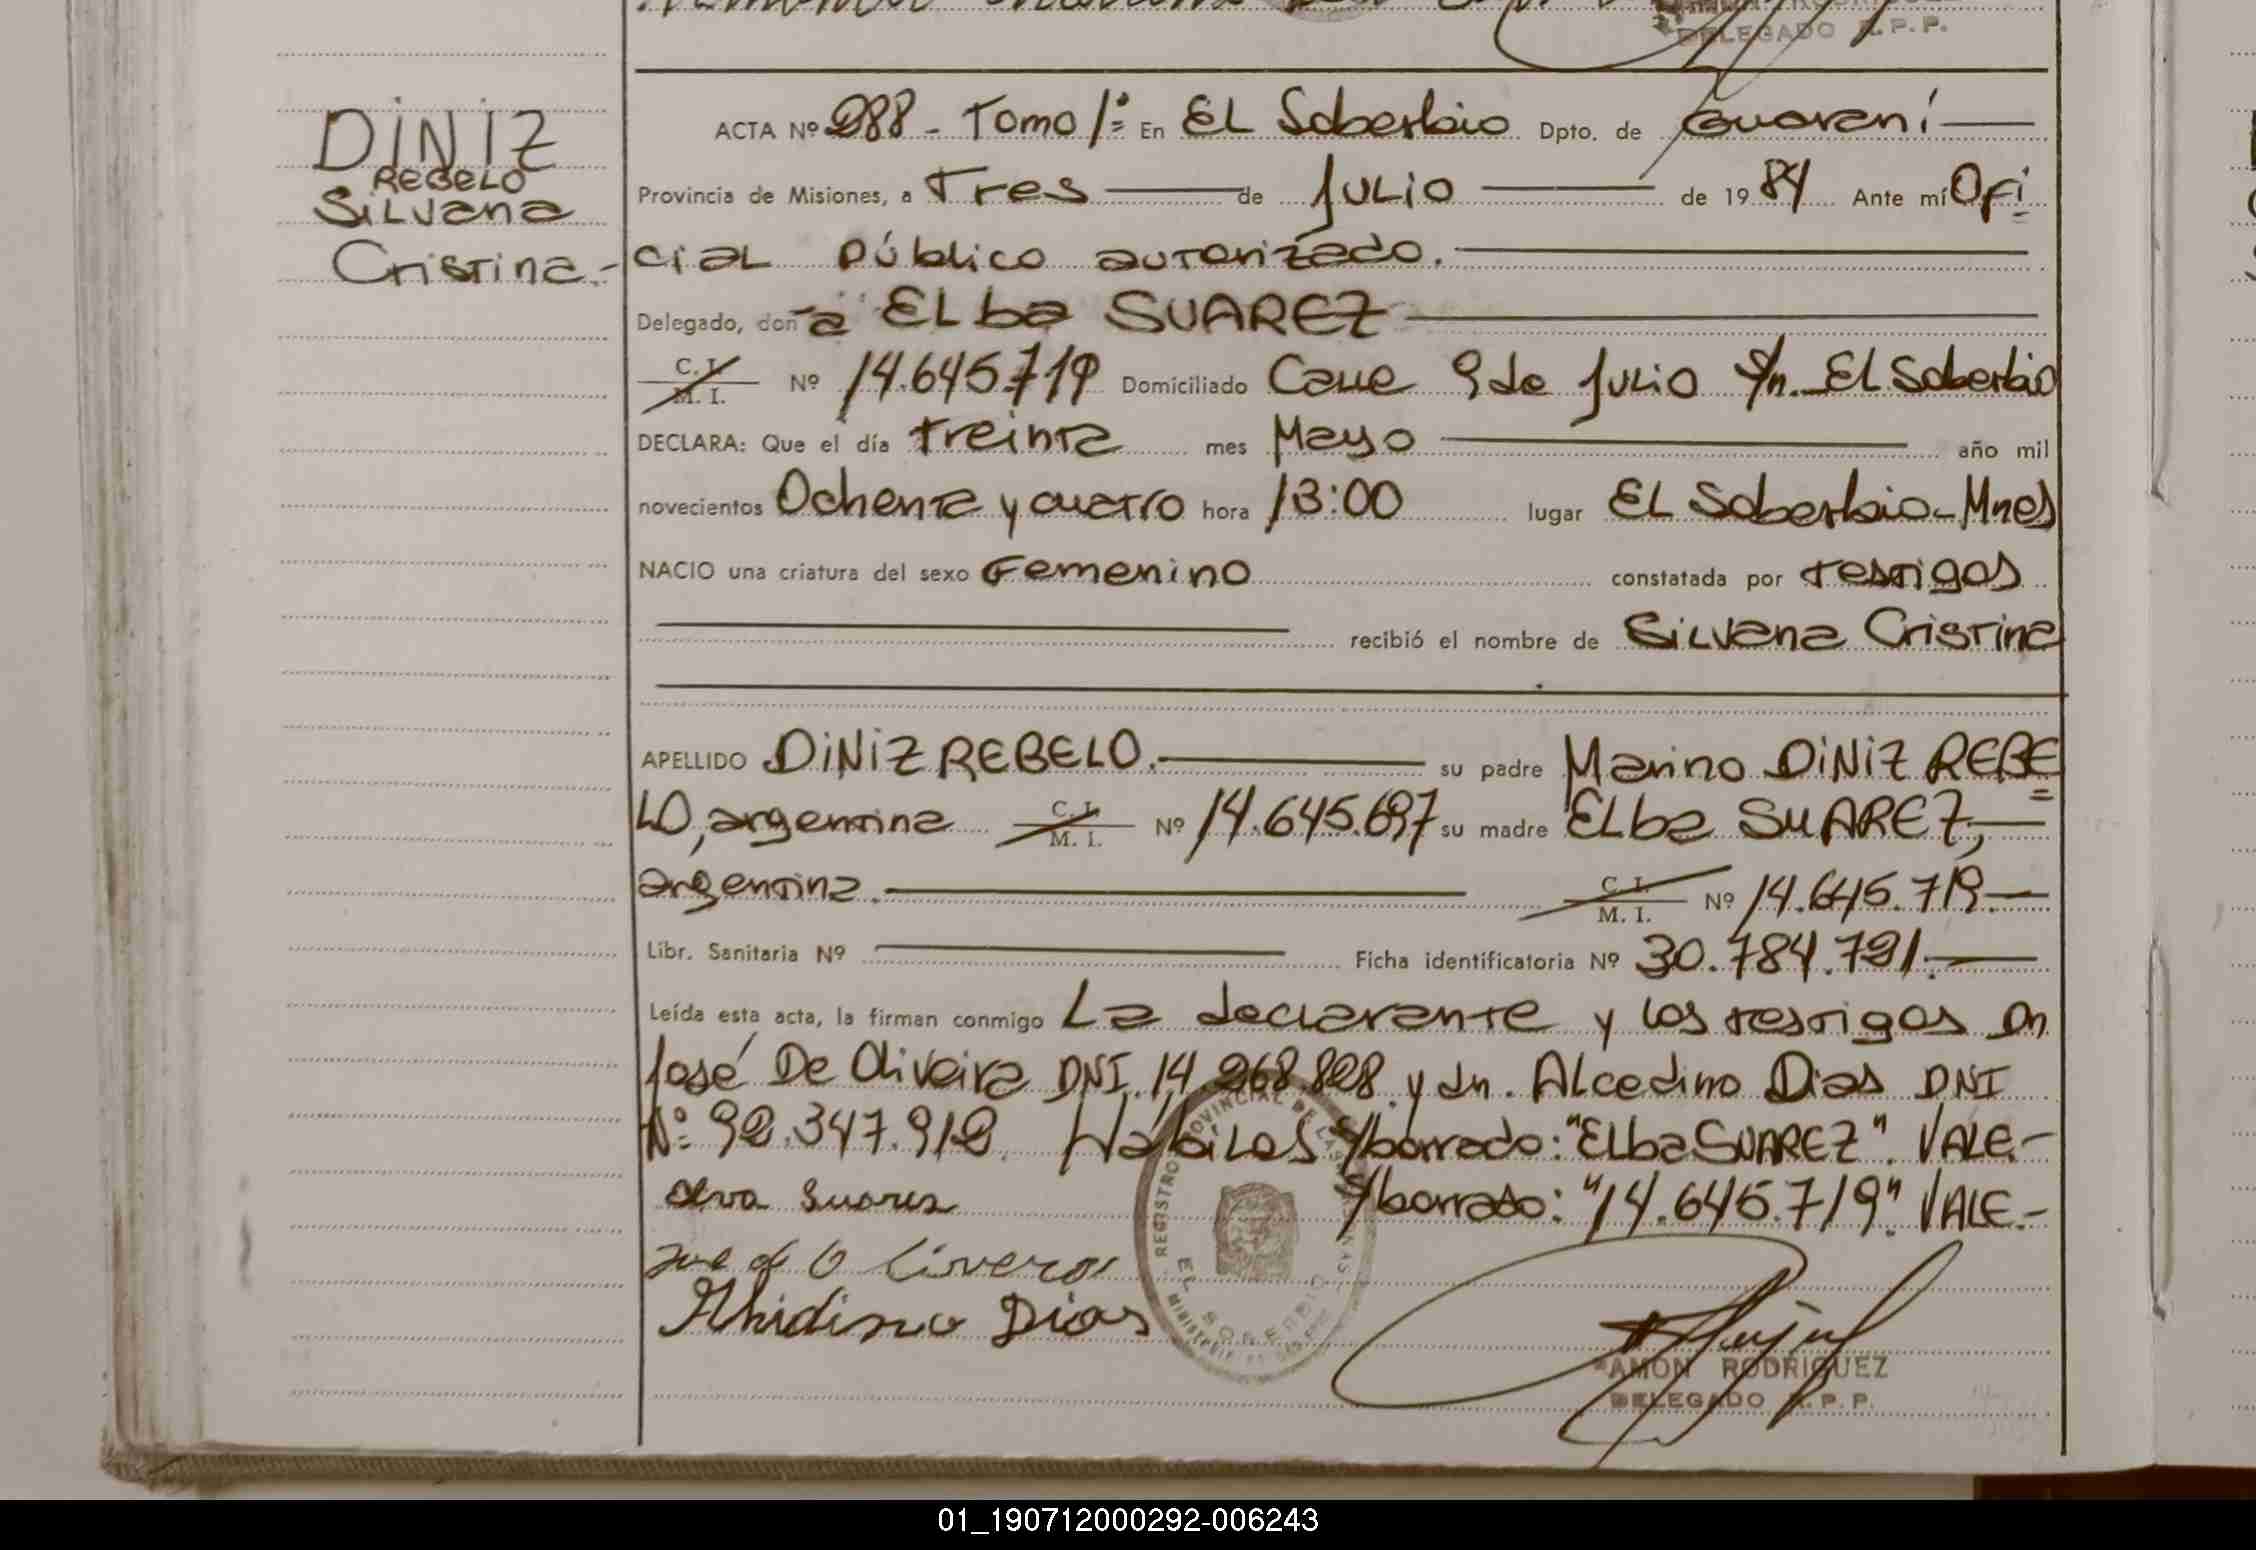 DELEGADO R.P.P.
DINIZ
REBELO
SiLvana
Cristina.-
ACTA Nº 288 - Tomo 1º En EL Soberbio Dpto. de Guaraní
Provincia de Misiones, a Tres de Julio de 1984 Ante mí Ofi
cial Público autorizado.
Delegado, doña ELba SUAREZ
C. I. M. I. Nº 14.645.719 Domiciliado Calle 9 de Julio S/n. El Soberbio
DECLARA: Que el día treinta mes Mayo año mil
novecientos Ochenta y cuatro hora 13:00 lugar EL Soberbio - Mnes
NACIO una criatura del sexo Femenino constatada por testigos
recibió el nombre de SiLvana Cristina
APELLIDO DINIZ REBELO. su padre Marino DINIZ REBE
LO, argentina C. I. M. I. Nº 14.645.697 su madre ELba SUAREZ,
argentina. C. I. M. I. Nº 14.645.719.
Libr. Sanitaria Nº Ficha identificatoria Nº 30.784.791.
Leída esta acta, la firman conmigo La declarante y los testigos Dn
José De Oliveira DNI. 14.268.828 y dn. Alcedino Dias DNI
Nº: 92.347.912 Hábiles S/borrado: "ELba SUAREZ". VALE.-
S/borrado: "14.645.719". VALE.-
elva Suarez
Dias
REGISTRO PROVINCIAL DE LAS PERSONAS
EL SOBERBIO
RAMON RODRIGUEZ
DELEGADO R.P.P.
01_190712000292-006243